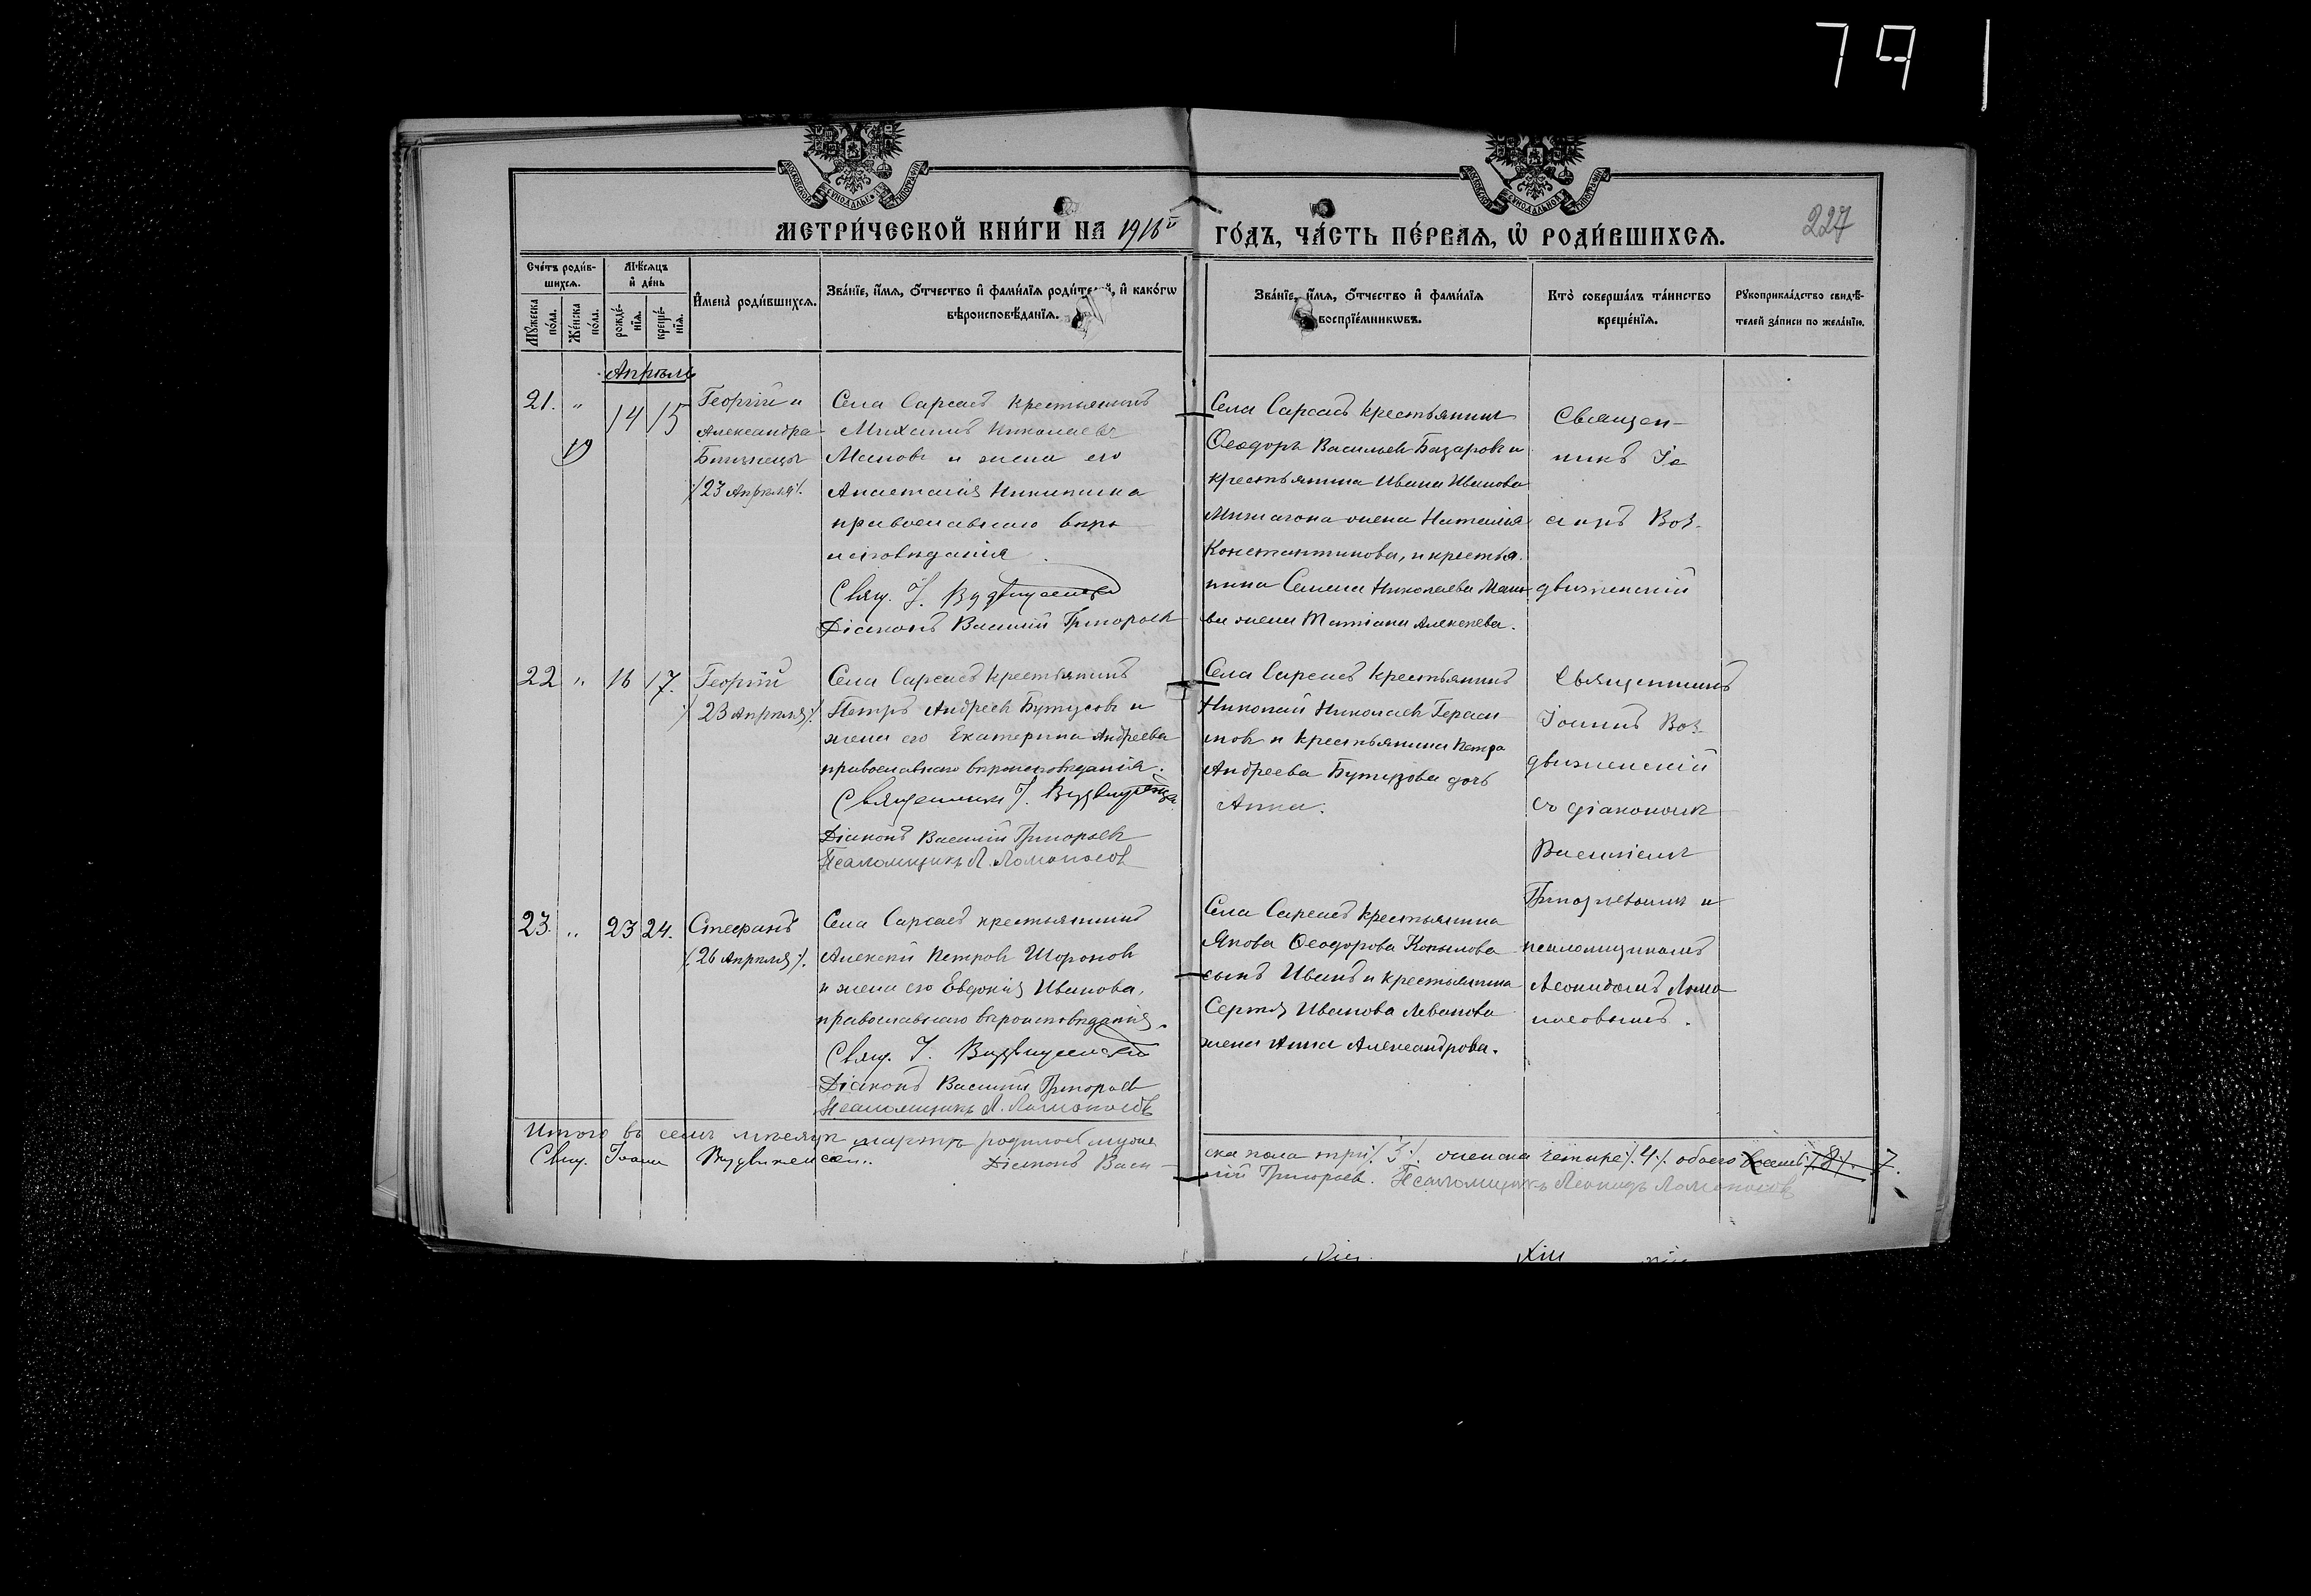 79
МОСКОВСКОЙ СѴНОДАЛЬНОЙ ТИПОГРАФІИ
МОСКОВСКОЙ СѴНОДАЛЬНОЙ ТИПОГРАФІИ
227
МЕТРИ́ЧЕСКОЙ КНИ́ГИ НА 1916й ГО́ДЪ, ЧА́СТЬ ПЕ́РВАЯ, Ѡ҆ РОДИ́ВШИХСЯ.
Сче́тъ роди́в-
шихся.
Мꙋ́жеска по́ла.
Же́нска по́ла.
Мѣ́сяцъ
и҆ де́нь
рожде́-
нїя.
креще́-
нїя.
И҆мена̀ роди́вшихся.
Зва́нїе, и҆́мя, ѻ҆́тчество и҆ фами́лїя роди́телей, и҆ како́гѡ
вѣроисповѣ́данїя.
Зва́нїе, и҆́мя, ѻ҆́тчество и҆ фами́лїя
воспрїе́мникѡвъ.
Кто̀ соверша́лъ та́инство
креще́нїя.
Рꙋкоприкла́дство свидѣ́-
телей за́писи по жела́нїю.
Апрѣль
21. " 14 15
19
Георгій и
Александра
Близнецы
/23 Апрѣля/.
Села Сарсасъ крестьянинъ
Михаилъ Николаевъ
Мановъ и жена его
Анастасія Никитина
православнаго вѣро
исповѣданія
Свящ. І. Воздвиженскій
Діаконъ Василій Григорьевъ
Села Сарсасъ крестьянинъ
Ѳеодоръ Васильевъ Базаровъ и
крестьянина Ивана Иванова
жена Наталія
Константинова, и крестья
нина Семена Николаева Мано
ва жена Татіана Алексѣева.
Священ-
никъ Іо
аннъ Воз-
движенскій
22 " 16 17.
Георгій
/23 Апрѣля/.
Села Сарсасъ крестьянинъ
Петръ Андреевъ Бутузовъ и
жена его Екатерина Андреева
православнаго вѣроисповѣданія.
Священникъ І. Воздвиженскій
Діаконъ Василій Григорьевъ
Псаломщикъ Л. Ломоносовъ
Села Сарсасъ крестьянинъ
Николай Николаевъ Гераси
мовъ и крестьянина Петра
Андреева Бутузова дочь
Анна.
Священникъ
Іоаннъ Воз-
движенскій
съ діакономъ
Василіемъ
Григорьевымъ и
псаломщикомъ
Леонидомъ Ломо
носовымъ.
23. " 23 24.
Стефанъ
/26 Апрѣля/.
Села Сарсасъ крестьянинъ
Алексѣй Петровъ Шороновъ
и жена его Евдокія Иванова,
православнаго вѣроисповѣданія.
Свящ. І. Воздвиженскій
Діаконъ Василій Григорьевъ
Псаломщикъ Л. Ломоносовъ
Села Сарсасъ крестьянина
Якова Ѳеодорова Копылова
сынъ Иванъ и крестьянина
Сергѣя Иванова Леванова
жена Анна Александрова.
Итого въ семъ мѣсяцѣ мартѣ родилось муже
ска пола три /3/. женска четыре /.4/. обоего восемь /8/. 7.
Свящ. Іоаннъ Воздвиженскій. Діаконъ Васи-
лій Григорьевъ. Псаломщикъ Леонидъ Ломоносовъ